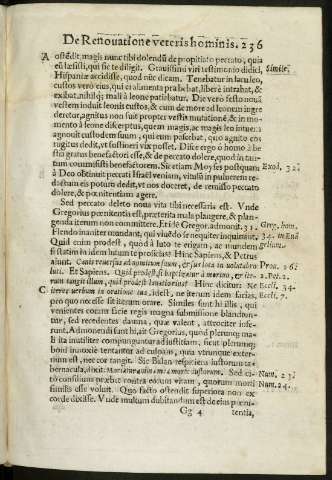 De Renouatione veteris hominis. 236
A ostēdit, magis nunc tibi dolendū de propitiato peccato, quia
eū læsisti, qui sic te diligit. Grauissimi viri testimonio didici,
Simile.
Hispaniæ accidisse, quod nūc dicam. Tenebatur in laculeo,
custos verò eius, qui ei alimenta præbebat, liberè intrabat, &
exibat, nihilq; mali à leone patiebatur. Die verò festo noua
vestem induit leonis custos, & cum de more ad leonem ingre
deretur, agnitus non fuit propter vestis mutationē & in mo-
mento à leone discerptus, quem magis, ac magis leo intuens
agnouit custodem suum, qui eum pascebat, quo agnito co
rugitus dedit, vt sustineri vix posset. Disce ergo ô homo à be
stia gratus benefactori esse, & de peccato dolere, quod in tan
tum commisisti benefactorem. Sic etiam Moyses postquam
Exod. 32.
à Deo obtinuit peccati Israël veniam, vitulū in puluerem re-
dactum eis potum dedit, vt nos doceret, de remisso peccato
dolere, & pœnitentiam agere.
Sed peccato deleto noua vita tibi necessaria est. Vnde
Gregorius pœnitentia est, præterita mala plangere, & plan-
genda iterum non committere. Et idē Gregor. admonit. 31.
Greg. hom.
Flendo inaniter mundat, qui viuēdo se nequiter inquinat.
34. in Euā
Quid enim prodest, quòd à luto te erigam, ac mundem
gelium.
si statim in idem lutum te proiicias? Hinc Sapiens, & Petrus
aiunt. Canis reuersus ad vomitum suum, & sus lota in volutabro
Prou. 26.
luti. Et Sapiens. Quid prodest, si
2. Pet. 2.
rum tangit illum, quid prodest lauatio eius? Hinc dicitur: Ne
Eccli. 34.
C iteres verbum in oratione tua, idest, ne iterum idem facias,
Eccli. 7.
pro quo necesse sit iterum orare. Similes sunt hi illis, qui
venientes coram facie regis magna submissione blandiun-
tur, sed recedentes damna, quæ valent, atrociter infe-
runt. Admonendi sunt hi, ait Gregorius, quòd plerunq; ma-
li ita inutiliter compunguntur ad iustitiam, sicut plerunq;
boni innoxiè tentantur ad culpam, quia vtrunque exter-
ius est, nec cor tangit. Sic Balan respiciens iustorum ta-
bernacula, dixit. Moriatur anima mea morte iustorum. Sed ci-
Num. 23.
tò consilium præbuit contra eorum vitam, quorum morti
Num. 24.
similis esse voluit. Quo facto ostendit superiora non ex
corde dixisse. Vnde multum dubitandum est de eius pœni-
Gg 4 tentia,